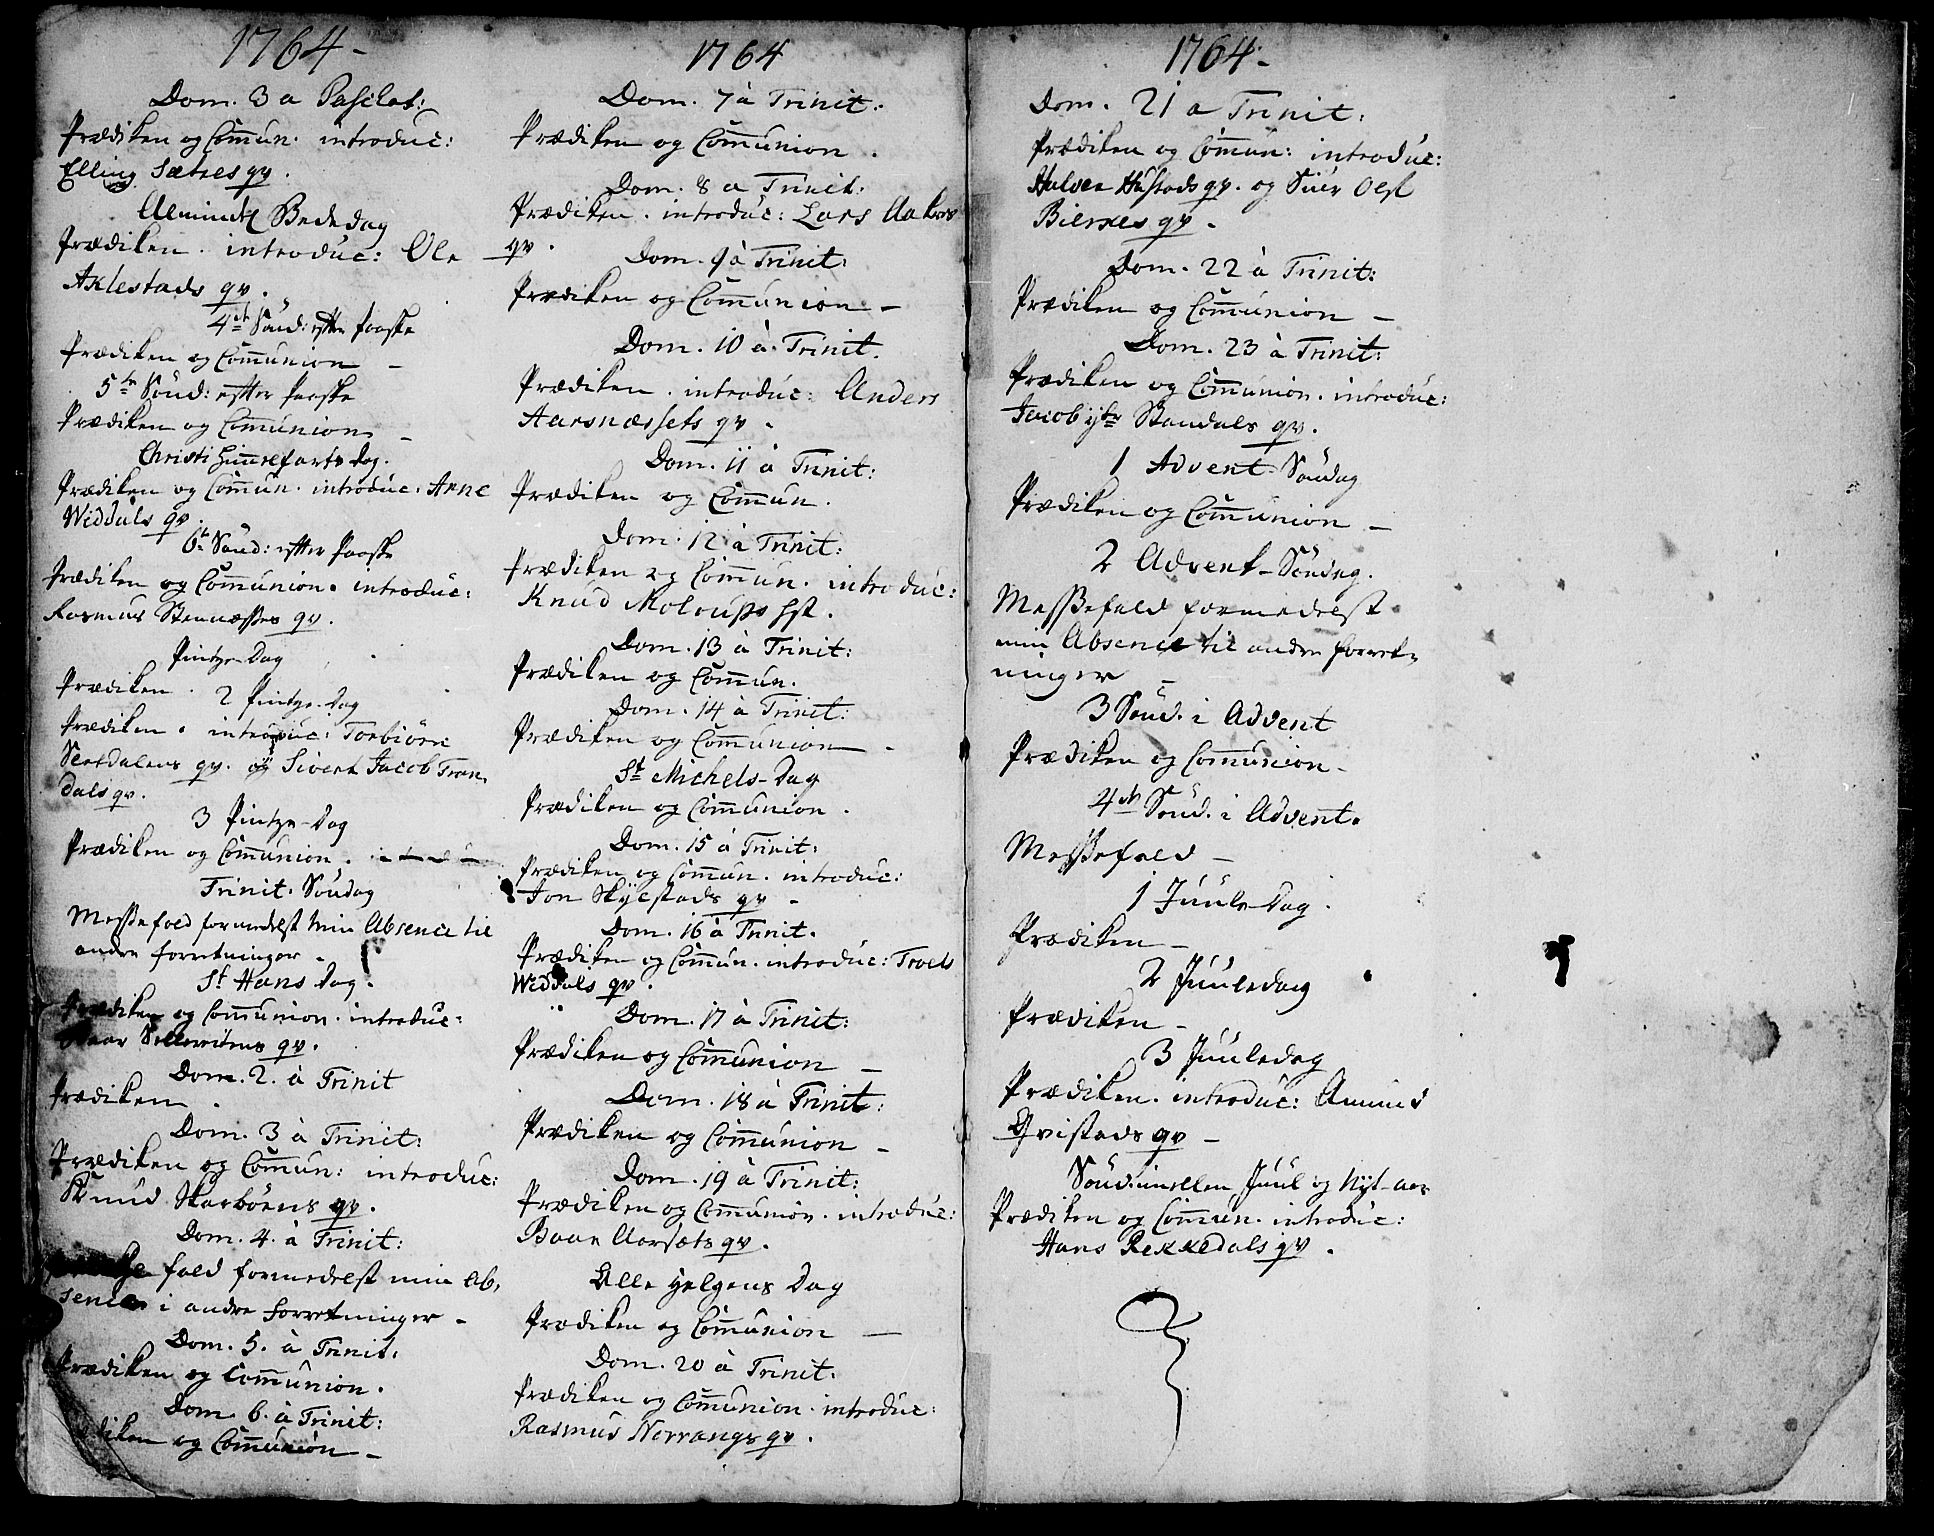 1764 -
Dom. 3 a Paschat:
Prædiken og Commun. introduc:
Elling Sætres qv.
Almindl Bededag
Prædiken. introduc: Ole
Aklestads qv.
4de Sönd: efter Paaske
Prædiken og Communion -
5te Sönd: efter Paaske
Prædiken og Communion -
Christi Himmelfarts dag.
Prædiken og Commun. introduc. Arne
Widdals qv.
6te Sönd: efter Paaske
Prædiken og Communion. introduc:
Rasmus Stennæsses qv.
Pintze-Dag
Prædiken.
2 Pintze-Dag
Prædiken. introduc: Torbiörn
qv. og Sivert Jacob Tran-
dals qv.
3 Pintze-Dag
Prædiken og Communion.
Trinit. Söndag
Messefald formedelst min Absence til
andre forretninger -
St Hans Dag.
Prædiken og Communion. introduc:
qv.
Dom. 2. à Trinit
Prædiken.
Dom. 3 à Trinit:
Prædiken og Commun: introduc:
Knud Skarböens qv.
Dom. 4. à Trinit:
fald formedelst min Ab-
sence i andre forretninger -
Dom. 5. à Trinit.
Prædiken og Communion.
Dom. 6. à Trinit:
Prædiken og Communion -
1764
Dom. 7 à Trinit.
Prædiken og Communion.
Dom. 8 a Trinit:
Prædiken. introduc: Lars Aakres
qv.
Dom. 9 à Trinit:
Prædiken og Communion -
Dom. 10 à Trinit.
Prædiken. introduc: Anders
Aarsnæssets qv.
Dom. 11 à Trinit:
Prædiken og Commun.
Dom. 12 à Trinit:
Prædiken og Commun. introduc:
Knud
Dom. 13 à Trinit:
Prædiken og Commun.
Dom. 14 a Trinit:
Prædiken og Communion -
St Michels-Dag
Prædiken og Communion.
Dom. 15 à Trinit:
Prædiken og Commun. introduc:
Jon Skyestads qv -
Dom. 16 à Trinit.
Prædiken og Commun. introduc: Troels
Widdals qv.
Dom. 17 à Trinit:
Prædiken og Communion -
Dom. 18 à Trinit:
Prædiken og Communion -
Dom. 19 à Trinit:
Prædiken og Communion. introduc:
Baar Aarsæts qv.
Alle Helgens Dag
Prædiken og Communion -
Dom. 20 à Trinit.
Prædiken og Communion. introduc:
Rasmus Norrangs qv.
1764. -
Dom. 21 a Trinit.
Prædiken og Commun: introduc:
Halvor Hustads qv. og Siur Ols
Bierkes qv.
Dom. 22 à Trinit:
Prædiken og Communion -
Dom. 23 à Trinit:
Prædiken og Communion. introduc:
Jacob Standals qv.
1 Advent-Söndag
Prædiken og Communion -
2 Advent-Söndag.
Messefald formedelst
min Absence til andre forret-
ninger -
3 Sönd. i Advent
Prædiken og Communion -
4de Sönd. i Advent.
Messefald -
1 Juule-Dag.
Prædiken -
2 Juuledag
Prædiken -
3 Juuledag
Prædiken. introduc: Amund
Qvistads qv -
Sönd. imellem Juul og Nyt-aar
Prædiken og Commun. introduc:
Hans Rekkedals qv.